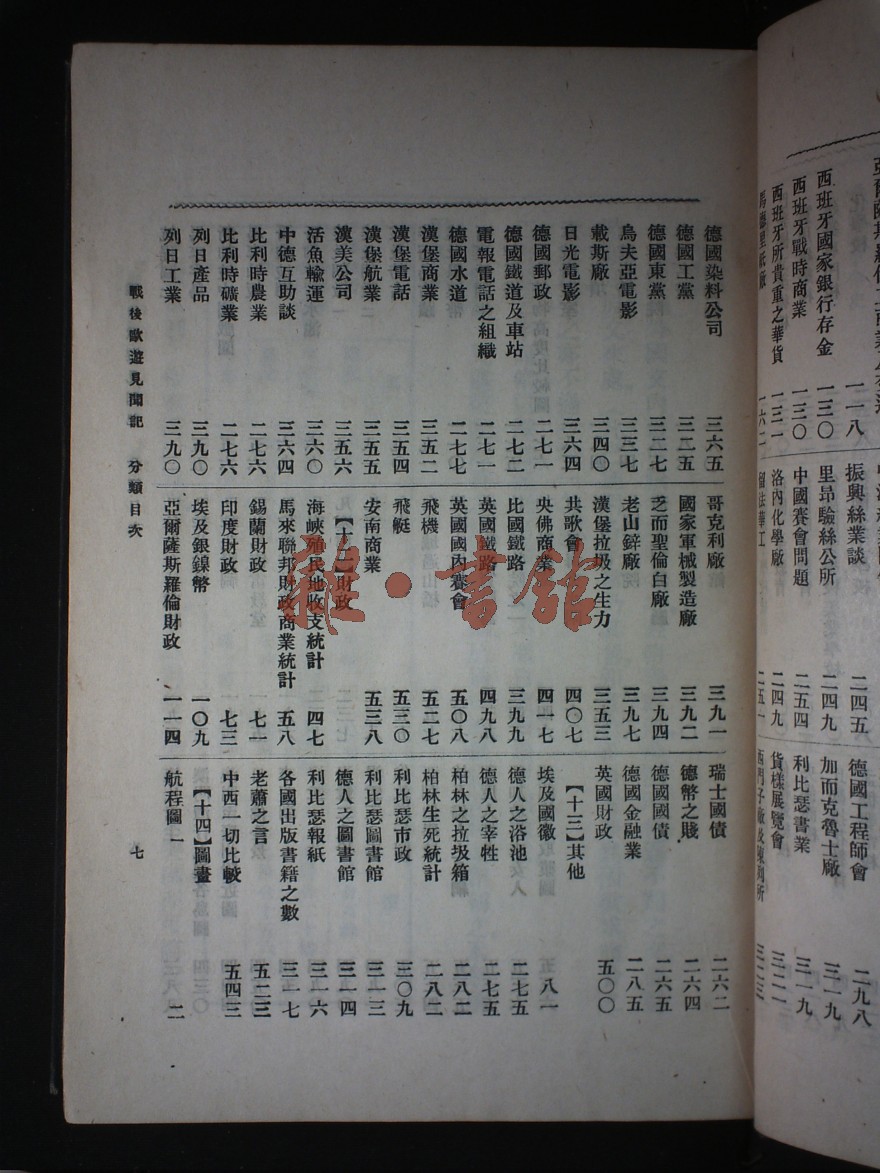 西班牙國家銀行存金 一三〇
西班牙戰時商業 一三〇
西班牙所貴重之華貨 一三一
一一八
振興絲業談 二四五
里昂驗絲公所 二四九
中國賽會問題 二五四
洛內化學廠 二四九
留法華工 二五一
德國工程師會 二九八
加而克魯士廠 三一九
利比瑟書業 三一九
貨樣展覽會 三二一
德國染料公司 三六五
德國工黨 三二五
德國東黨 三二七
烏夫亞電影 三三七
載斯廠 三四〇
日光電影 三六四
德國郵政 二七一
德國鐵道及車站 二七二
電報電話之組織 二七一
德國水道 二七七
漢堡商業 三五二
漢堡電話 三五四
漢堡航業 三五五
漢美公司 三五六
活魚輸運 三六〇
中德互助談 三六四
比利時農業 二七六
比利時礦業 二七六
列日產品 三九〇
列日工業 三九〇
哥克利廠 三九一
國家軍械製造廠 三九二
乏而聖倫白廠 三九四
老山鋅廠 三九七
漢堡垃圾之生力 三五三
共歌會 四〇七
央佛商業 四一七
比國鐵路 三九九
英國鐵路 四九八
英國國內賽會 五〇八
飛機 五二七
飛艇 五三〇
安南商業 五三八
【十二】財政
海峽殖民地收支統計 四七
馬來聯邦財政商業統計 五八
錫蘭財政 七一
印度財政 七三
埃及銀鎳幣 一〇九
亞爾薩斯羅倫財政 一一四
瑞士國債 二六二
德幣之賤 二六四
德國國債 二六五
德國金融業 二八五
英國財政 五〇〇
【十三】其他
埃及國徽 八一
德人之浴池 二七五
德人之宰牲 二七五
柏林之垃圾箱 二八二
柏林生死統計 二八二
利比瑟市政 三〇九
利比瑟圖書館 三一三
德人之圖書館 三一四
利比瑟報紙 三一六
各國出版書籍之數 三一七
老蕭之言 五二三
中西一切比較 五四三
【十四】圖畫
航程圖一 二
戰後歐遊見聞記 分類目次
七
雜·書館